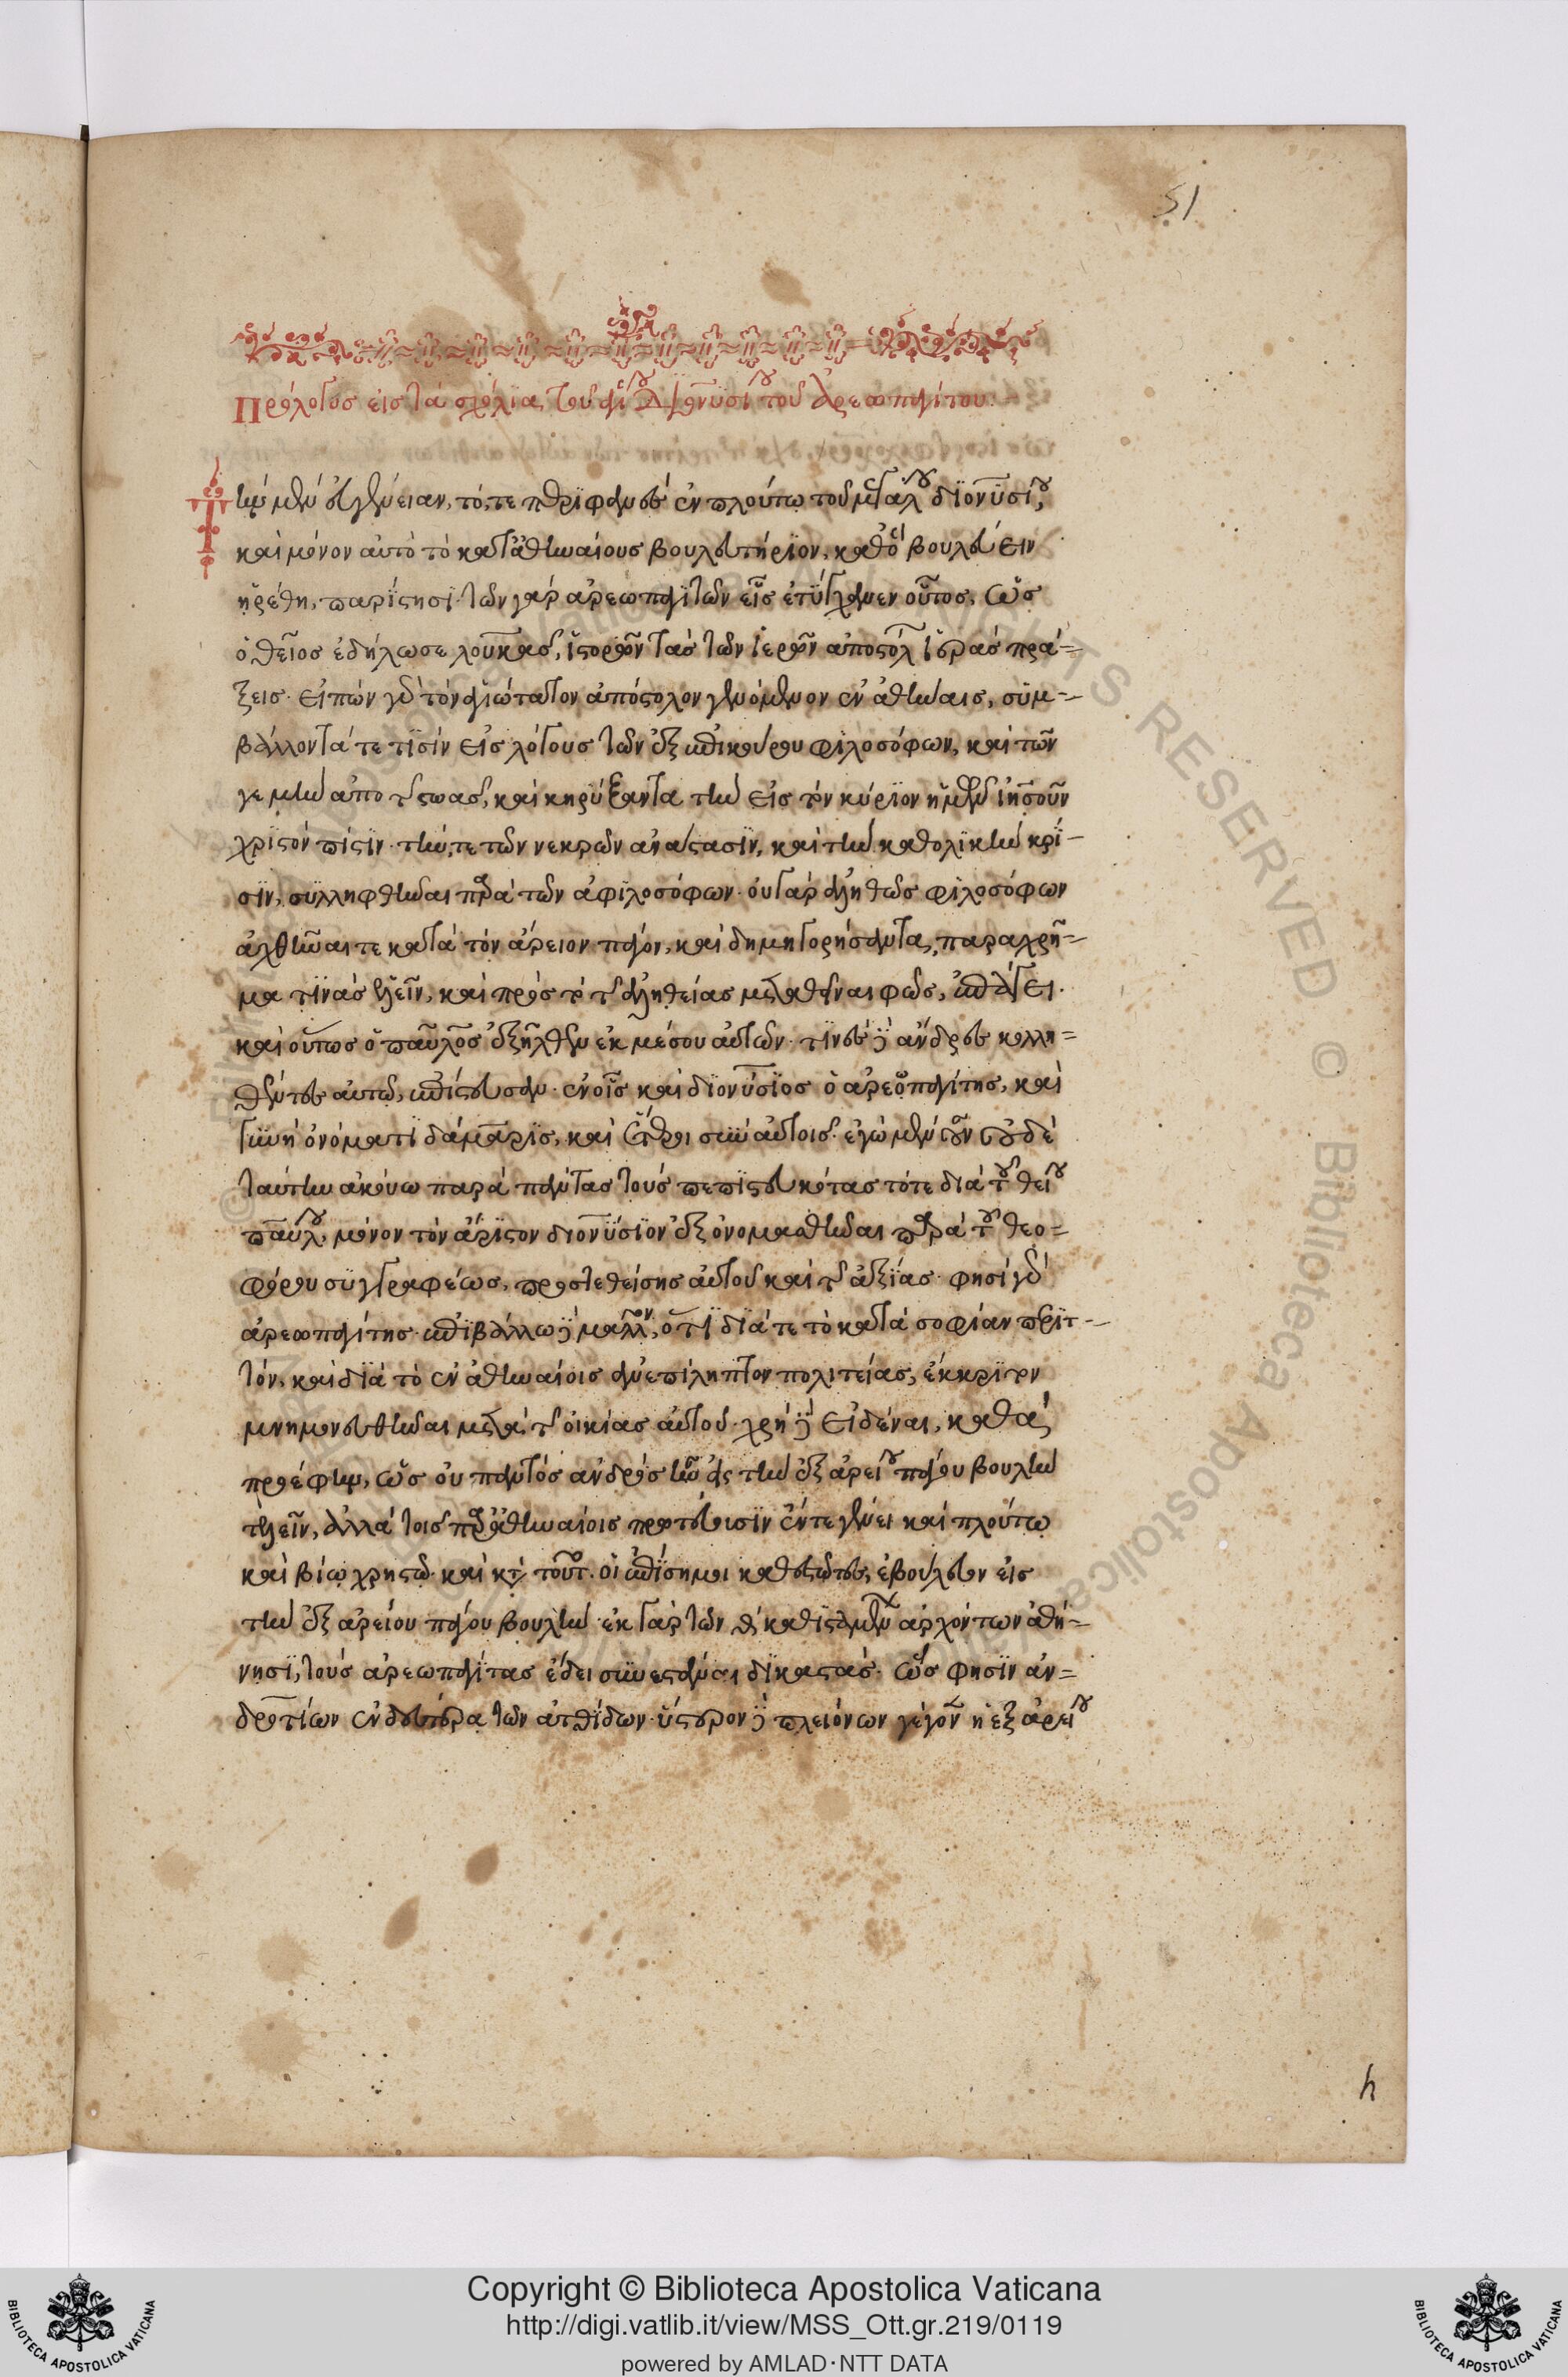 51
Πρόλογος εἰς τὰ σχόλια τοῦ ἁγίου Διονυσίου τοῦ Ἀρεοπαγίτου
Τὴν μὲν εὐγένειαν, τό,τε περιφανὲς ἐν πλούτω τοῦ μεγάλου διονυσίου,
καὶ μόνον αὐτὸ τὸ κατ' ἀθηναίους βουλευτήριον, καθ' ὃ βουλεύειν
ἡρέθη, παρίστησι· τῶν γὰρ ἀρεωπαγιτῶν εἷς ἐτύγχανεν οὗτος, ὡς
ὁ θεῖος ἐδήλωσε λουκᾶς, ἱστορῶν τὰς τῶν ἱερῶν ἀποστόλων ἱερὰς πρά-
ξεις· εἰπὼν γὰρ τὸν ἁγιώτατον ἀπόστολον γενόμενον ἐν ἀθήναις, συμ-
βάλλοντά τε τισὶν εἰς λόγους τῶν ἐξ ἐπικούρου φιλοσόφων, καὶ τῶν
γε μὴν ἀπὸ τῆς στοᾶς, καὶ κηρύξαντα τὴν εἰς τὸν κύριον ἡμῶν ἰησοῦν
χριστὸν πίστιν· τήν,τε τῶν νεκρῶν ἀνάστασιν, καὶ τὴν καθολικὴν κρί-
σιν, συλληφθῆναι παρὰ τῶν ἀφιλοσόφων· οὐ γὰρ ἀληθῶς φιλοσόφων
ἀχθῆναι τε κατὰ τὸν ἄρειον πάγον, καὶ δημηγορήσαντα, παραχρῆ-
μα τινὰς ἑλεῖν, καὶ πρὸς τὸ τῆς ἀληθείας μεταθεῖναι φῶς, ἐπάγει·
καὶ οὕτως ὁ παῦλος ἐξῆλθεν ἐκ μέσου αὐτῶν· τινὲς δὲ ἄνδρες κολλη-
θέντες αὐτῶ, ἐπίστευσαν· ἐν οἷς καὶ διονύσιος ὁ ἀρεοπαγίτης, καὶ
γυνὴ ὀνόματι δάμαρις, καὶ ἕτεροι σὺν αὐτοῖς· ἐγὼ μὲν οὖν οὐδὲ
ταύτην ἀκούω παρὰ πάντας τοὺς πεπιστευκότας τότε διὰ τοῦ θείου
παύλου, μόνον τὸν ἄριστον διονύσιον ἐξονομασθῆναι παρὰ τοῦ θεο-
φόρου συγγραφέως, προστεθείσης αὐτοῦ καὶ τῆς ἀξίας· φησὶ γὰρ
ἀρεωπαγίτης· ἐπιβάλλω δὲ μᾶλλον, ὅτι διά τε τὸ κατὰ σοφίαν περιτ-
τόν, καὶ διὰ τὸ ἐν ἀθηναίοις ἀνεπίληπτον πολιτείας, ἔκκριτον
μνημονευθῆναι μετὰ τῆς οἰκίας αὐτοῦ· χρὴ δὲ εἰδέναι, καθὰ
προέφην, ὡς οὐ παντὸς ἀνδρὸς ἦν εἰς τὴν ἐξ ἀρείου πάγου βουλὴν
τελεῖν, ἀλλὰ τοῖς παρ' ἀθηναίοις πρωτεύουσιν ἔν τε γένει καὶ πλούτω
καὶ βίω χρηστῶ· καὶ κατὰ τοῦτο οἱ ἐπίσημοι καθεστῶτες, ἐβούλευον εἰς
τὴν ἐξ ἀρείου πάγου βουλήν· ἐκ γὰρ τῶν θ καθισταμένων ἀρχόντων ἀθή-
νησι, τοὺς ἀρεωπαγίτας ἔδει συνεστάναι δικαστάς· ὥς φησιν ἀν-
δροτίων ἐν δευτέρα τῶν ἀτθίδων· ὕστερον δὲ πλειόνων γέγονεν ἡ ἐξ ἀρείου
h
Copyright © Biblioteca Apostolica Vaticana
http://digi.vatlib.it/view/MSS_Ott.gr.219/0119
powered by AMLAD·NTT DATA
BIBLIOTECA APOSTOLICA VATICANA
BIBLIOTECA APOSTOLICA VATICANA